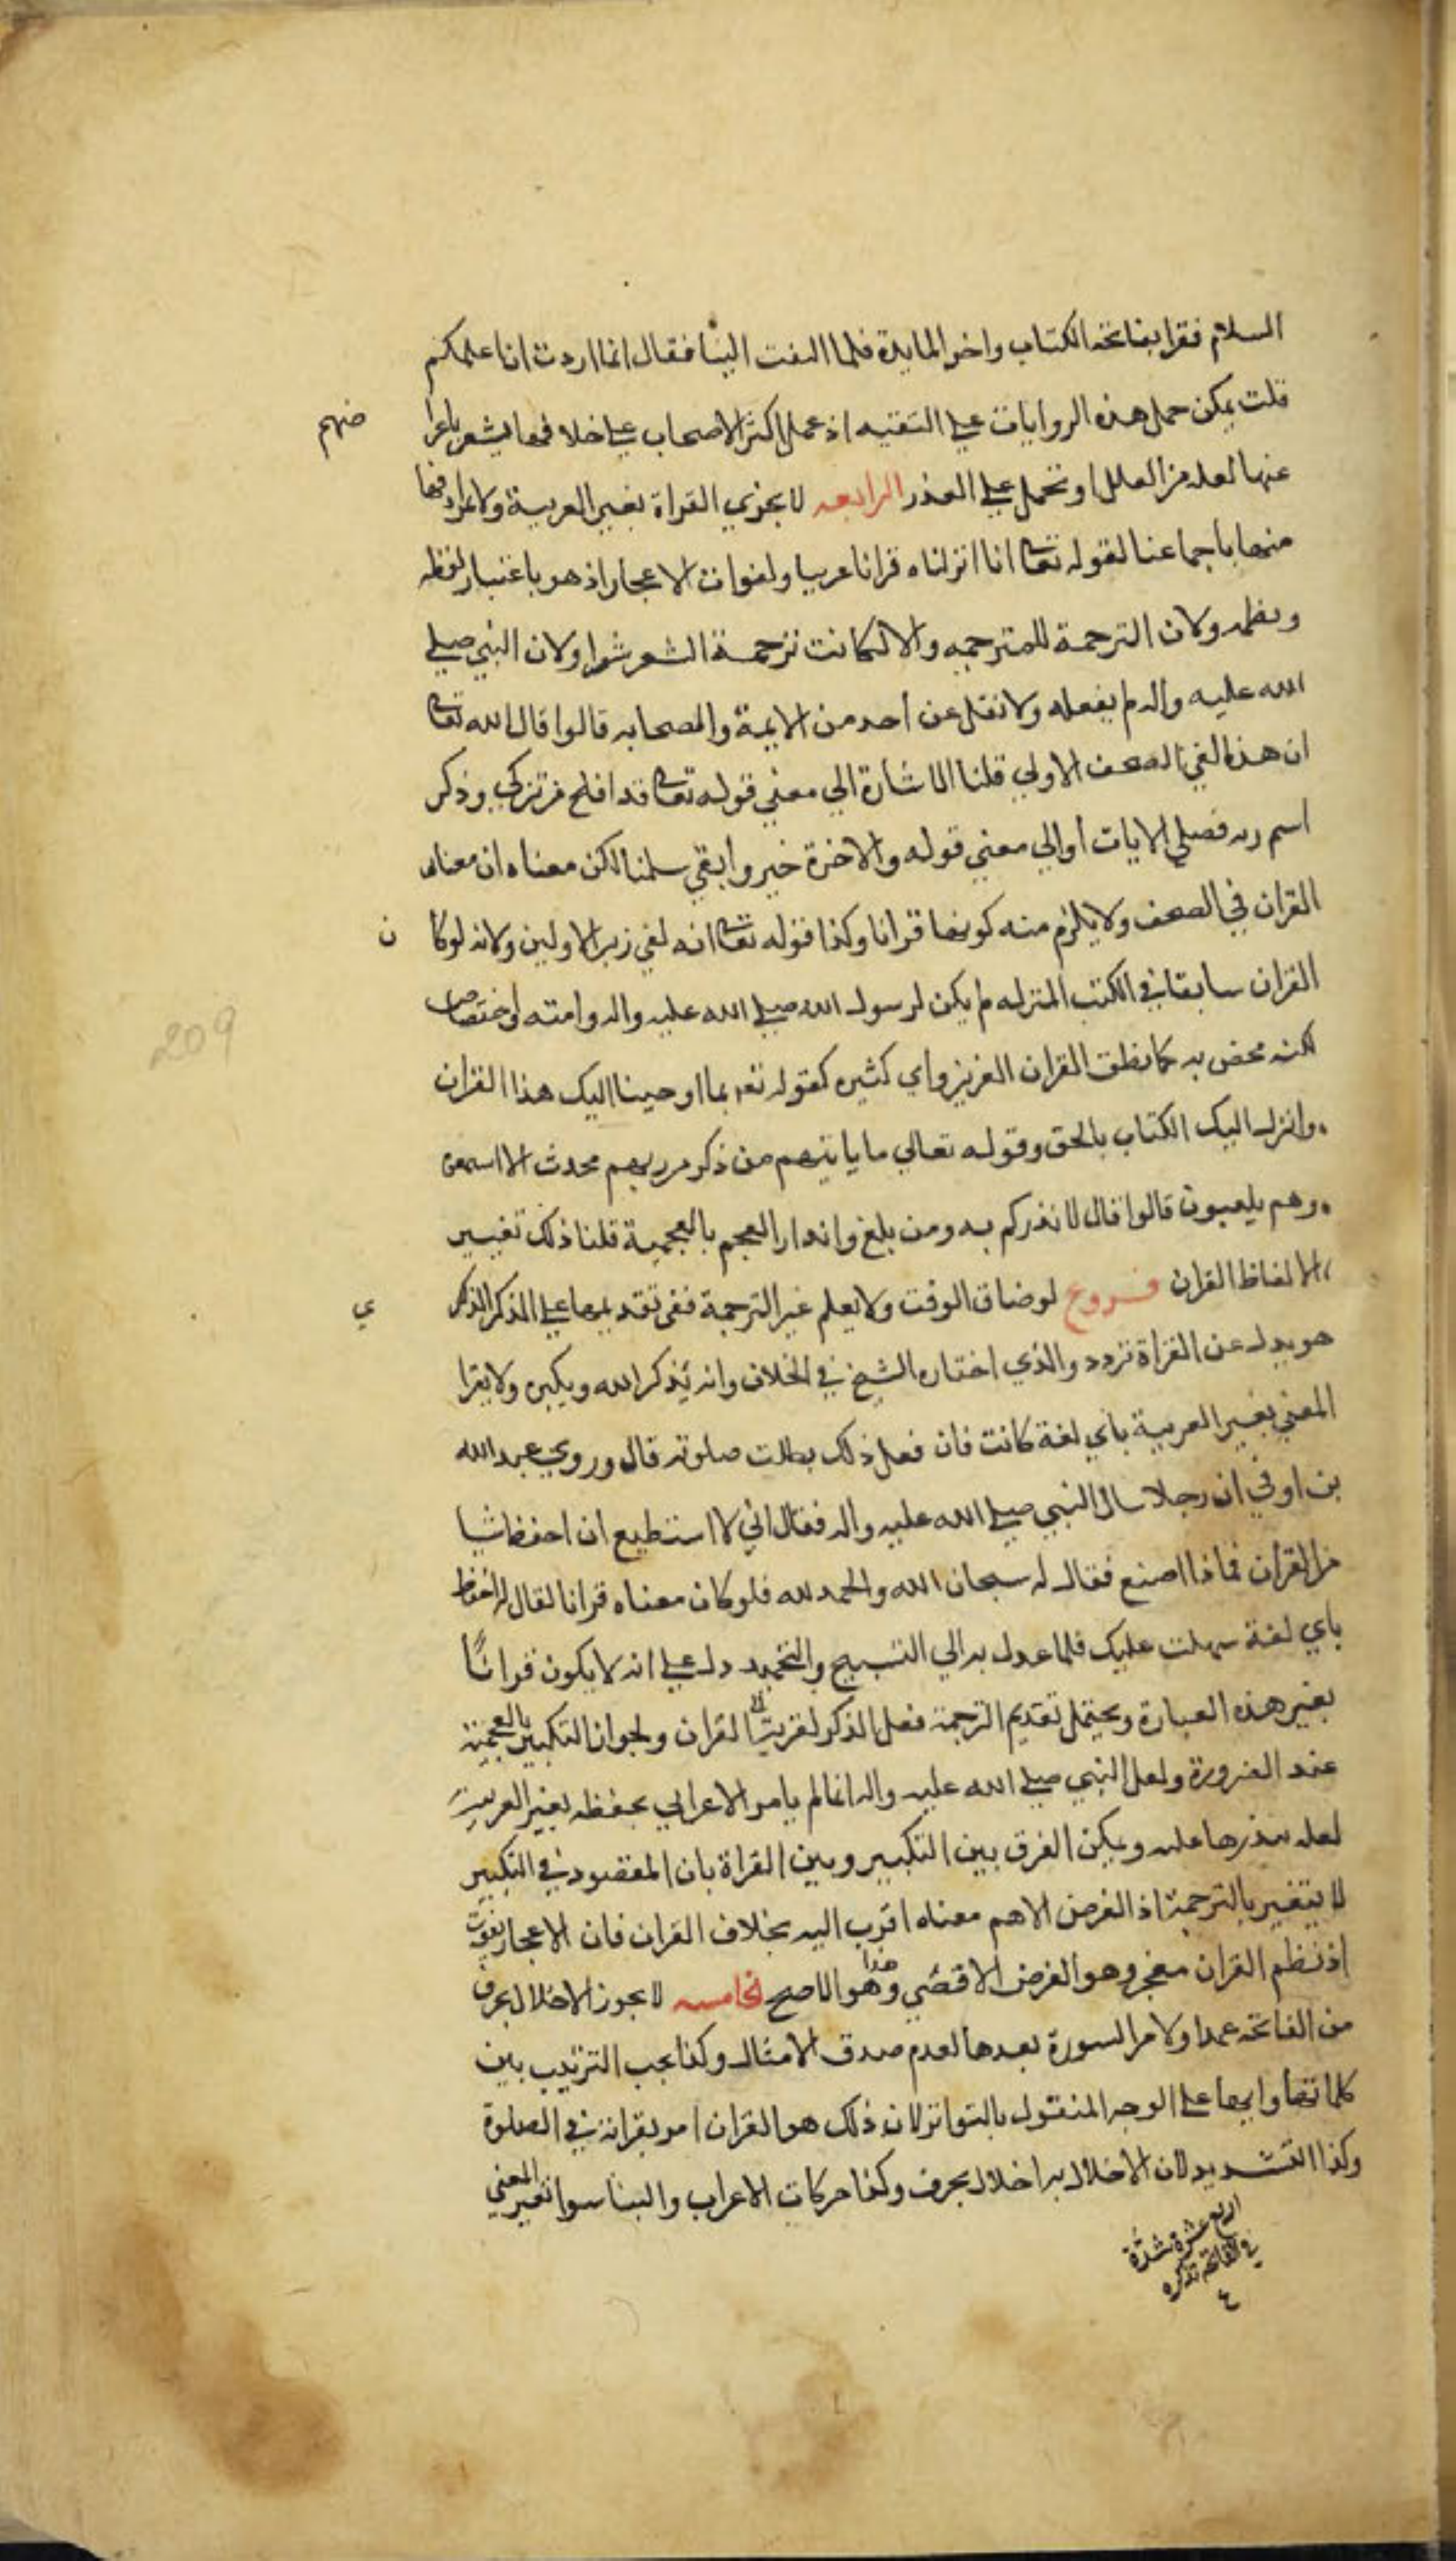 السلام فقرا بفاتحة الكتاب واخر المايدة فلما التفت الينا فقال انما اردت ان اعلمكم
قلت يمكن حمل هذه الروايات علي التقيه اذ عمل اكثر الاصحاب علي خلافها يشعر باعرا ضهم
عنها لعلة من العلل او تحمل علي العذر الرابعه لا يجزي القراة بغير العربية ولا مرادفها
منها باجماعنا لقوله تعا انا انزلناه قرانا عربيا ولفوات الاعجاز اذ هو باعتبار لفظه
ونظمه ولان الترجمة للمترجمه والا لكانت ترجمة الشعر شعرا ولان النبي صلي
الله عليه واله لم يفعله ولا نقل عن احد من الايمة والصحابه قالوا قال الله تعا
ان هذا لفي الصحف الاولي قلنا الاشارة الي معني قوله تعا قد افلح من تزكي وذكر
اسم ربه فصلي الايات او الي معني قوله والاخرة خير وابقي سلمنا لكن معناه ان معناه
القران في الصحف ولا يلزم منه كونها قرانا وكذا قوله تعا انه لفي زبر الاولين ولانه لوكا ن
القران سابقا في الكتب المنزله لم يكن لرسول الله صلي الله عليه واله وامته اختصاص
لكنه مختص به كما نطق القران العزيز واي كثيره كقوله تعه بما اوحينا اليك هذا القران
وانزل اليك الكتاب بالحق وقوله تعالي ما ياتيهم من ذكر من ربهم محدث الا استمعوه
وهم يلعبون قالوا قال لانذركم به ومن بلغ وانذار العجم بالعجمية قلنا ذلك تفسير
لالفاظ القران فروع لو ضاق الوقت ولا يعلم غير الترجمة ففي تقديمها علي الذكر الذ ي
هو بدل عن القراة تردد والذي اختاره الشيخ في الخلاف وانه يذكر الله ويكبره ولا يقرا
المعني بغير العربية باي لغة كانت فان فعل ذلك بطلت صلوته قال وروي عبد الله
بن اوفي ان رجلا سال النبي صلي الله عليه واله فقال اني لا استطيع ان احفظ شيا
من القران فماذا اصنع فقال له سبحان الله والحمد لله فلو كان معناه قرانا لقال له احفظ
باي لغة سهلت عليك فلما عدل به الي التسبيح والتحميد دل علي انه لا يكون قرانًا
بغير هذه العبارة ويحتمل تقديم الترجمة فعل الذكر لقربه الي القران ولجواز التكبير بالعجمية
عند الضرورة ولعل النبي صلي الله عليه واله انما لم يامر الاعرابي بحفظه بغير العربيه
لعله عليه ويمكن الفرق بين التكبير وبين القراة بان المقصود في التكبير
لا يتغير بالترجمة اذ الغرض الاهم معناه اقرب اليه بخلاف القران فان الاعجاز يفوت
اذ نظم القران معجز وهو الغرض الاقصي وهذا هو الاصح الخامسه لا يجوز الاخلال بحرف
من الفاتحه عمدا ولا من السورة بعدها لعدم صدق الامتثال وكذا يجب الترتيب بين
كلماتها وايها علي الوجه المنقول بالتواتر لان ذلك هو القران امر بقراته في الصلوة
وكذا التشديد لان الاخلال به اخلال بحرف وكذا حركات الاعراب والبنا سوا تغير المعني
اربع عشرة شدة
في الفاتحه تذكره
209